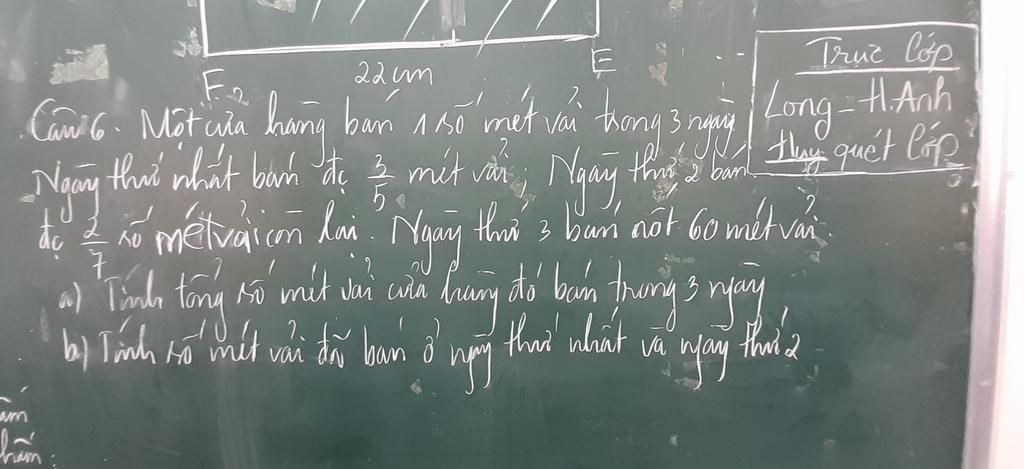 F
22cm
E
Câu 6. Một cửa hàng bán 1 số mét vải trong 3 ngày
Ngày thứ nhất bán đc 3/5 mét vải, Ngày thứ 2 bán
đc 2/7 số mét vải còn lại. Ngày thứ 3 bán nốt 60 mét vải.
a) Tính tổng số mét vải cửa hàng đó bán trong 3 ngày
b) Tính số mét vải đã bán ở ngày thứ nhất và ngày thứ 2
Trực lớp
Long - H.Anh
Huy quét lớp